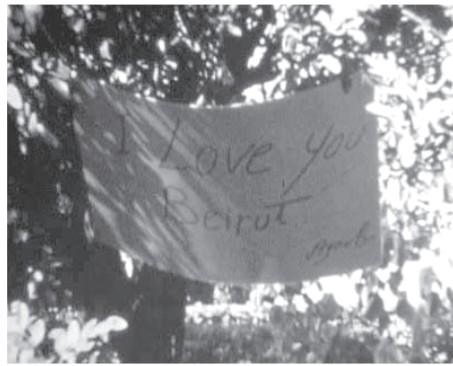 I Love you
Beirut